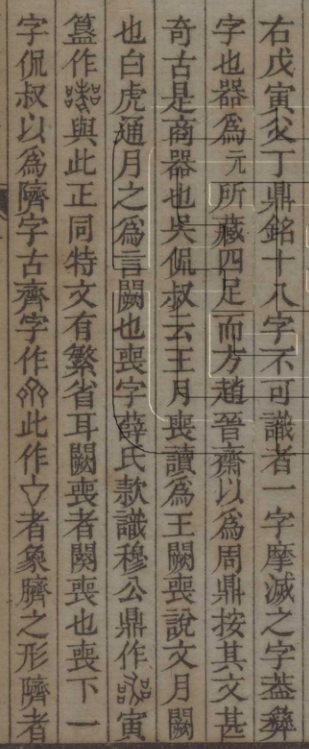 右戊寅父丁鼎銘十八字不可識者一字摩滅之字蓋彝
字也器爲元所藏四足而方趙晉齋以爲周鼎按其文甚
奇古是商器也吳侃叔云王月喪讀爲王闕喪說文月闕
也白虎通月之爲言闕也喪字薛氏款識穆公鼎作寅
簋作與此正同特文有繁省耳闕喪者闋喪也喪下一
字侃叔以爲隮字古齊字作此作者象臍之形隮者